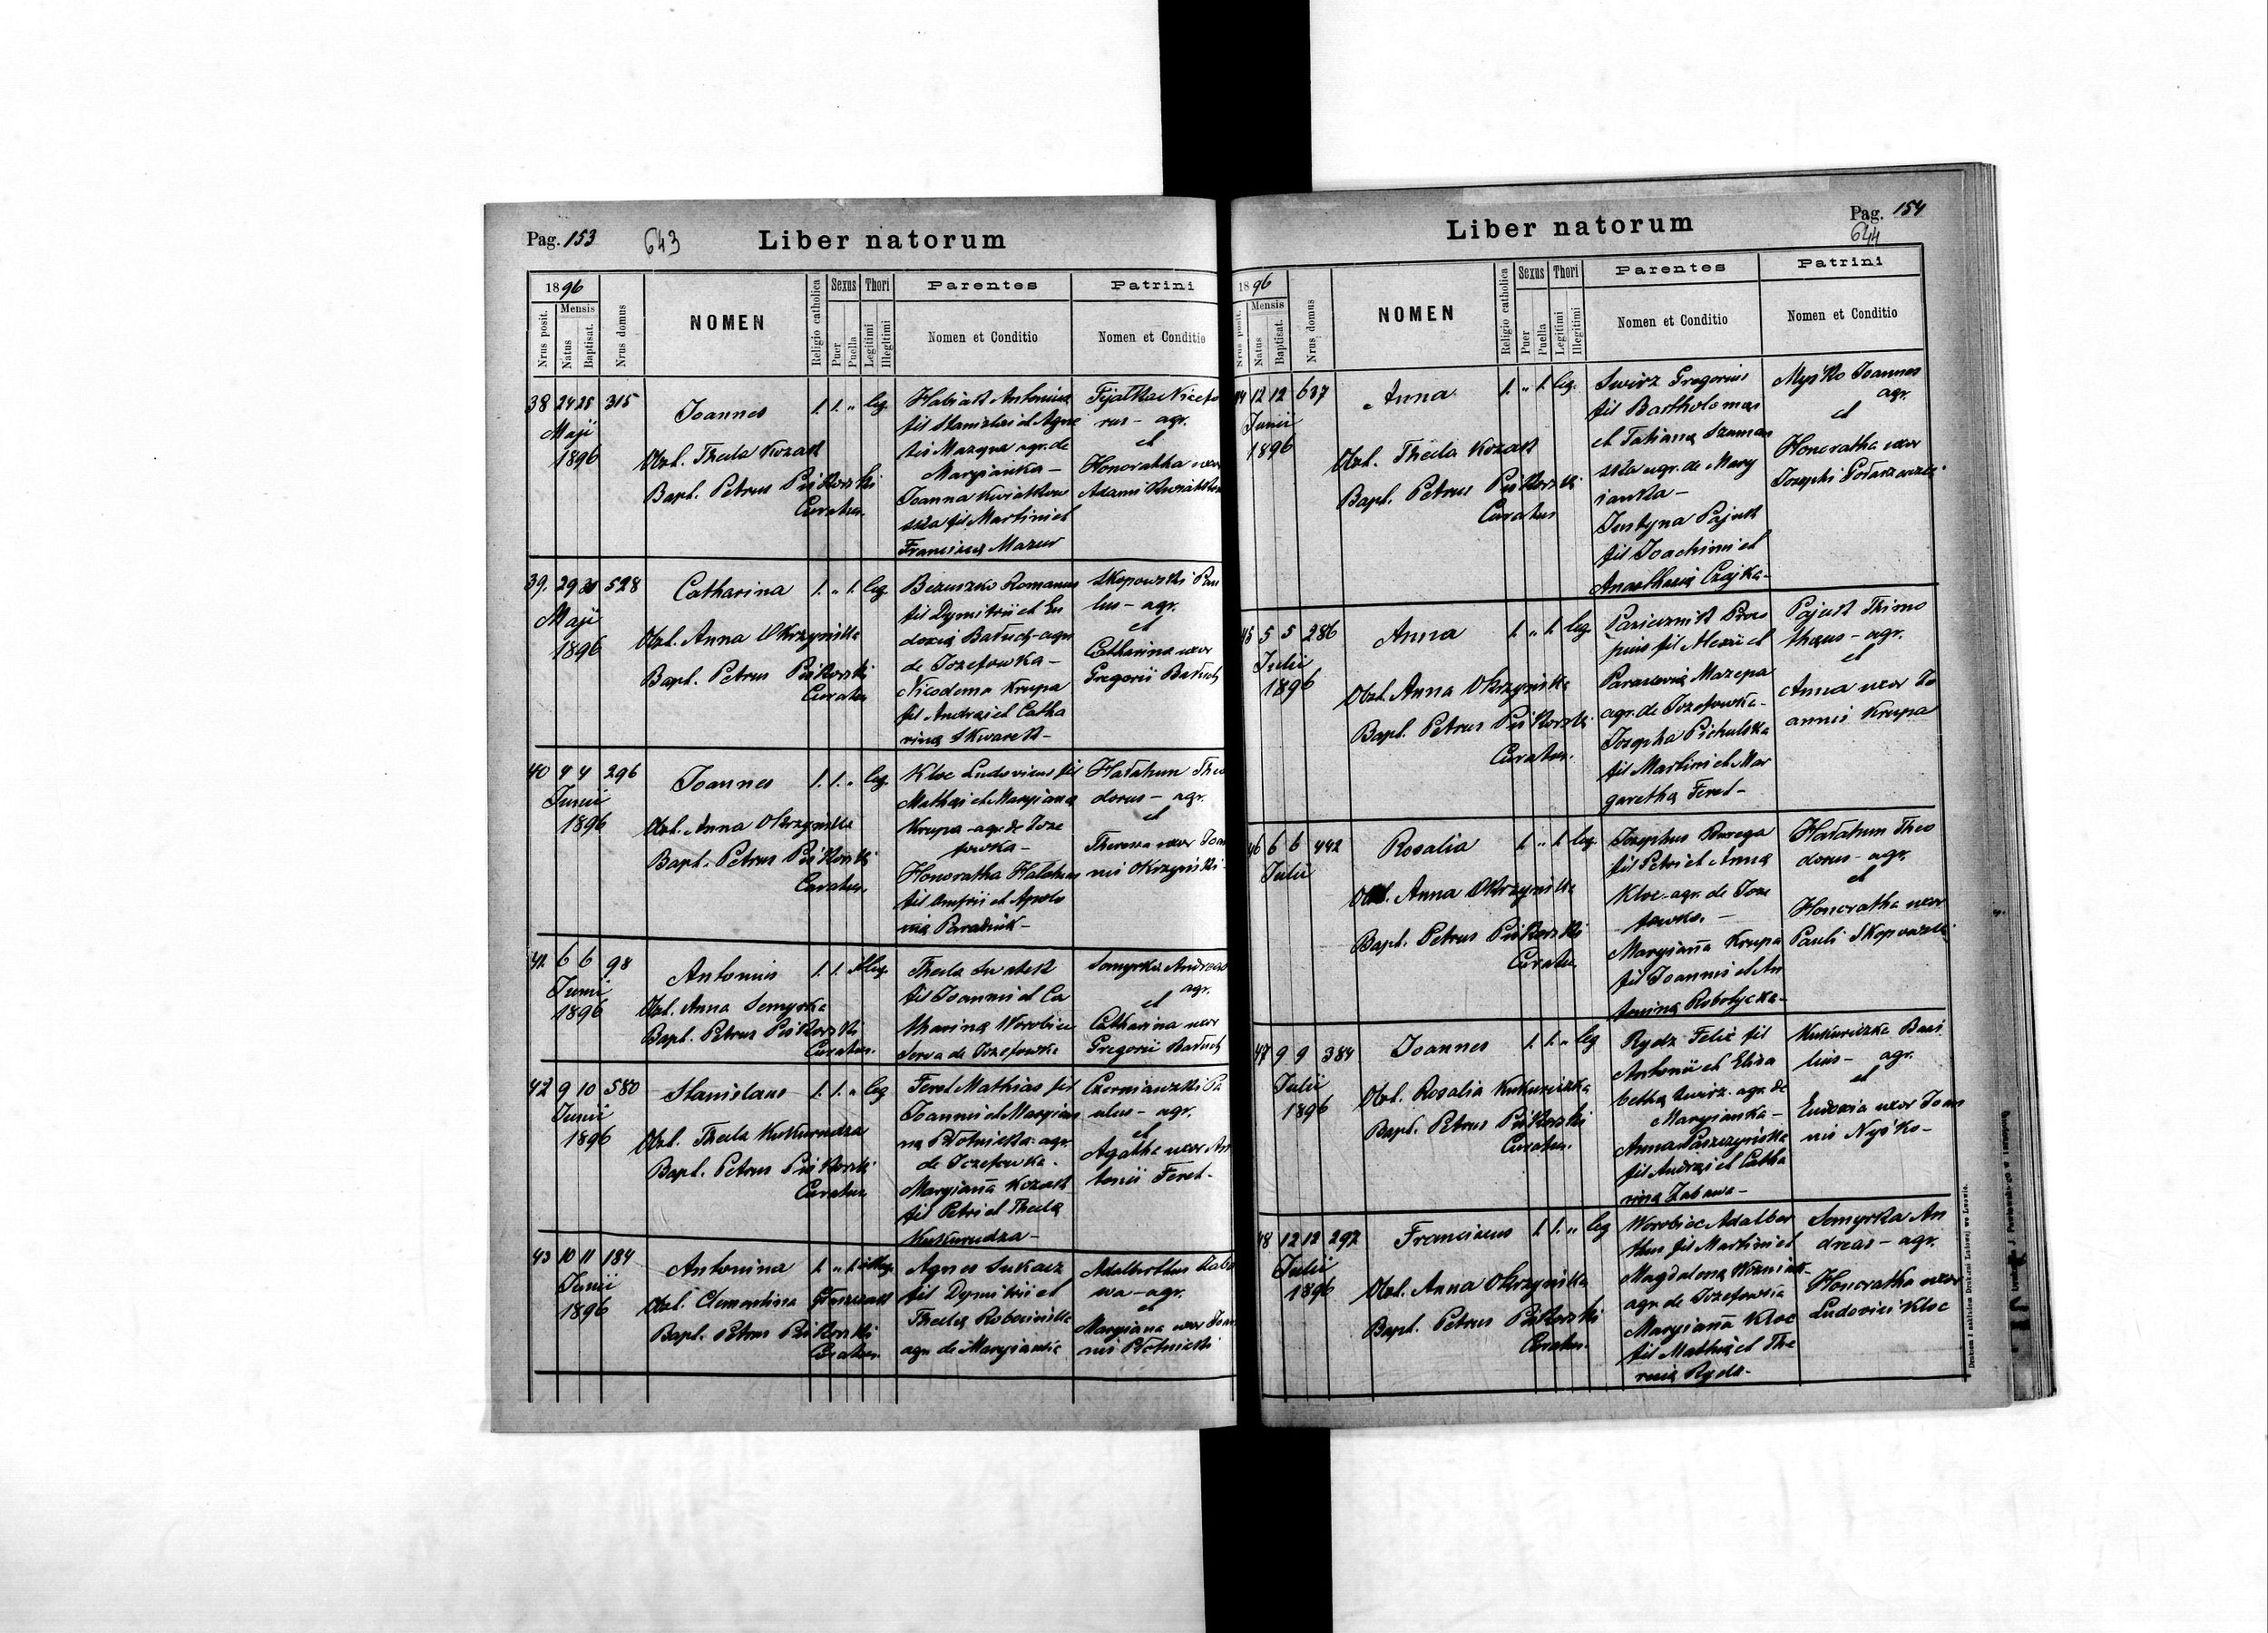 Pag. 153
643
Liber natorum
1896
Nrus posit.
Mensis
Natus
Baptisat.
Nrus domus
NOMEN
Religio catholica
Sexus
Puer
Puella
Thori
Legitimi
Illegitimi
Parentes
Nomen et Conditio
Patrini
Nomen et Conditio
38 24 25 315
Maji
1896
Joannes
1. 1. „ leg.
Obst. Thecla Kozak
Bapt. Petrus Piskorski
Curatus.
fil Stanislai et Agne
tis Mazyur agr. de
Maryianka –
Joanna Kwiatkow
ska fil Martini et
Francisca Mazur
rus – agr.
et
Honoratha uxor
39. 29 30 528
Maji
1896
Catharina
1. „ 1. leg.
Obst. Anna Okrzynska
Bapt. Petrus Piskorski
Curatus
Bezuszko Romanus
fil Dymitrii et Eu
doxia Bałuch agr.
de Jozefowka –
Nicodema Krupa
fil Andreæ et Catha
rina Skwarek –
Skopowski Pau
lus – agr.
et
Catharina uxor
Gregorii Bałuch
40 4 4 296
Junii
1896
Joannes
1. 1. „ leg.
Obst. Anna Okrzynska
Bapt. Petrus Piskorski
Curatus.
Kloc Ludovicus fil
Mathæi et Maryiana
Krupa – agr. de Joze
fowka –
Honoratha Hałahun
fil Onufrii et Apolo
nia
Hałahun Theo
dorus – agr.
et
Theresia uxor Joan
nis Okrzynski –
41. 6 6 98
Junii
1896
Antonius
1. 1. „ illeg.
Obst. Anna Semyrka
Bapt. Petrus Piskorski
Curatus.
Thecla
fil Joannis et Ca
tharina Worobiec
serva de Jozefowka
Semyrka Andreas
agr.
et
Catharina uxor
Gregorii Bałuch
42 9 10 580
Junii
1896
Stanislaus
1. 1. „ leg
Obst. Thecla Kukurudza
Bapt. Petrus Piskorski
Curatus.
Feret Mathias fil
Joannis et Maryian
na Płotnicka agr.
de Jozefowka.
Maryianna Kozak
fil Petri et Thecla
Kukurudza –
Czerniawski Pa
ulus – agr.
et
Agatha uxor An
tonii Feret –
43 10 11 184
Junii
1896
Antonina
1. „ 1. illeg.
Obst. Clementina
Bapt. Petrus Piskorski
Curatus.
Agnes Sukacz
fil Dymitrii et
Thecla
agr. de Maryianka
Adalberthus Zaba
wa – agr.
et
Maryiana uxor Joan
nis Płotnicki
Liber natorum
Pag. 154
644
1896
Nrus posit.
Mensis
Natus
Baptisat.
Nrus domus
NOMEN
Religio catholica
Sexus
Puer
Puella
Thori
Legitimi
Illegitimi
Parentes
Nomen et Conditio
Patrini
Nomen et Conditio
44 12 12 637
Junii
1896
Anna
1. „ 1. leg.
Obst. Thecla Kozak
Bapt. Petrus Piskorski
Curatus
Swirz Gregorius
fil Bartholomæi
et Tatiana Szuman
ska agr. de Mary
ianka –
Justyna Pajuk
fil Joachimi et
Anasthasia Czajka –
Myśko Joannes
agr.
et
Honoratha uxor
Josephi
45 5 5 286
Julii
1896
Anna
1. „ 1. leg.
Obst. Anna Okrzynska
Bapt. Petrus Piskorski
Curatus.
Pasiecznik Proco
pius fil Alexii et
Parascevia Mazepa
agr. de Jozefowka –
Josepha Pichulska
fil Martini et Mar
garetha Feret –
Pajuk Thimo
theus – agr.
et
Anna uxor Jo
annis Krupa
46 6 6 442
Julii
Rosalia
1. „ 1. leg.
Obst. Anna Okrzynska
Bapt. Petrus Piskorski
Curatus
Josephus
fil Petri et Anna
Kloc – agr. de Joze
fowka. –
Maryianna Krupa
fil Joannis et An
tonina Robotycka –
Hałahun Theo
dorus – agr.
et
Honoratha uxor
Pauli Skopowski
47 9 9 384
Julii
1896
Joannes
1. 1. „ leg
Obst. Rosalia Kukuruzka
Bapt. Petrus Piskorski
Curatus.
Rydz Felix fil
Antonii et Elisa
betha Swirz. agr. de
Maryianka –
Anna Paszczynska
fil Andreæ et Catha
rina Zabawa –
Kukuruzka Basi
lius – agr.
et
Eudoxia uxor Joan
nis Myśko –
48 12 12 292
Julii
1896
Franciscus
1. 1. „ leg
Obst. Anna Okrzynska
Bapt. Petrus Piskorski
Curatus.
Worobiec Adalber
thus fil Martini et
Magdalena Wozniak –
agr. de Jozefowka
Maryiana Kloc
fil Mathiæ et The
resia Rydz –
Semyrka An
dreas – agr.
Honoratha uxor
Ludovici Kloc
Drukiem i nakładem Drukarni Ludowej we Lwowie.